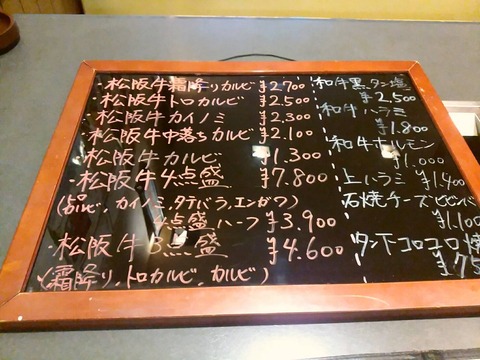 ・松阪牛霜降りカルビ ¥2.700
・松阪牛トロカルビ ¥2.500
・松阪牛カイノミ ¥2.300
・松阪牛中落ちカルビ ¥2.100
・松阪牛カルビ ¥1.300
・松阪牛4点盛 ¥7.800
(カルビ、カイノミ、タテバラ、エンガワ)
4点盛ハーフ ¥3.900
・松阪牛3点盛 ¥4.600
(霜降り、トロカルビ、カルビ)
和牛黒タン塩
¥2,500
和牛ハラミ
¥1.800
和牛ホルモン
¥1.000
上ハラミ ¥1.400
石焼チーズビビンバ
¥1.100
タン下コロコロ焼